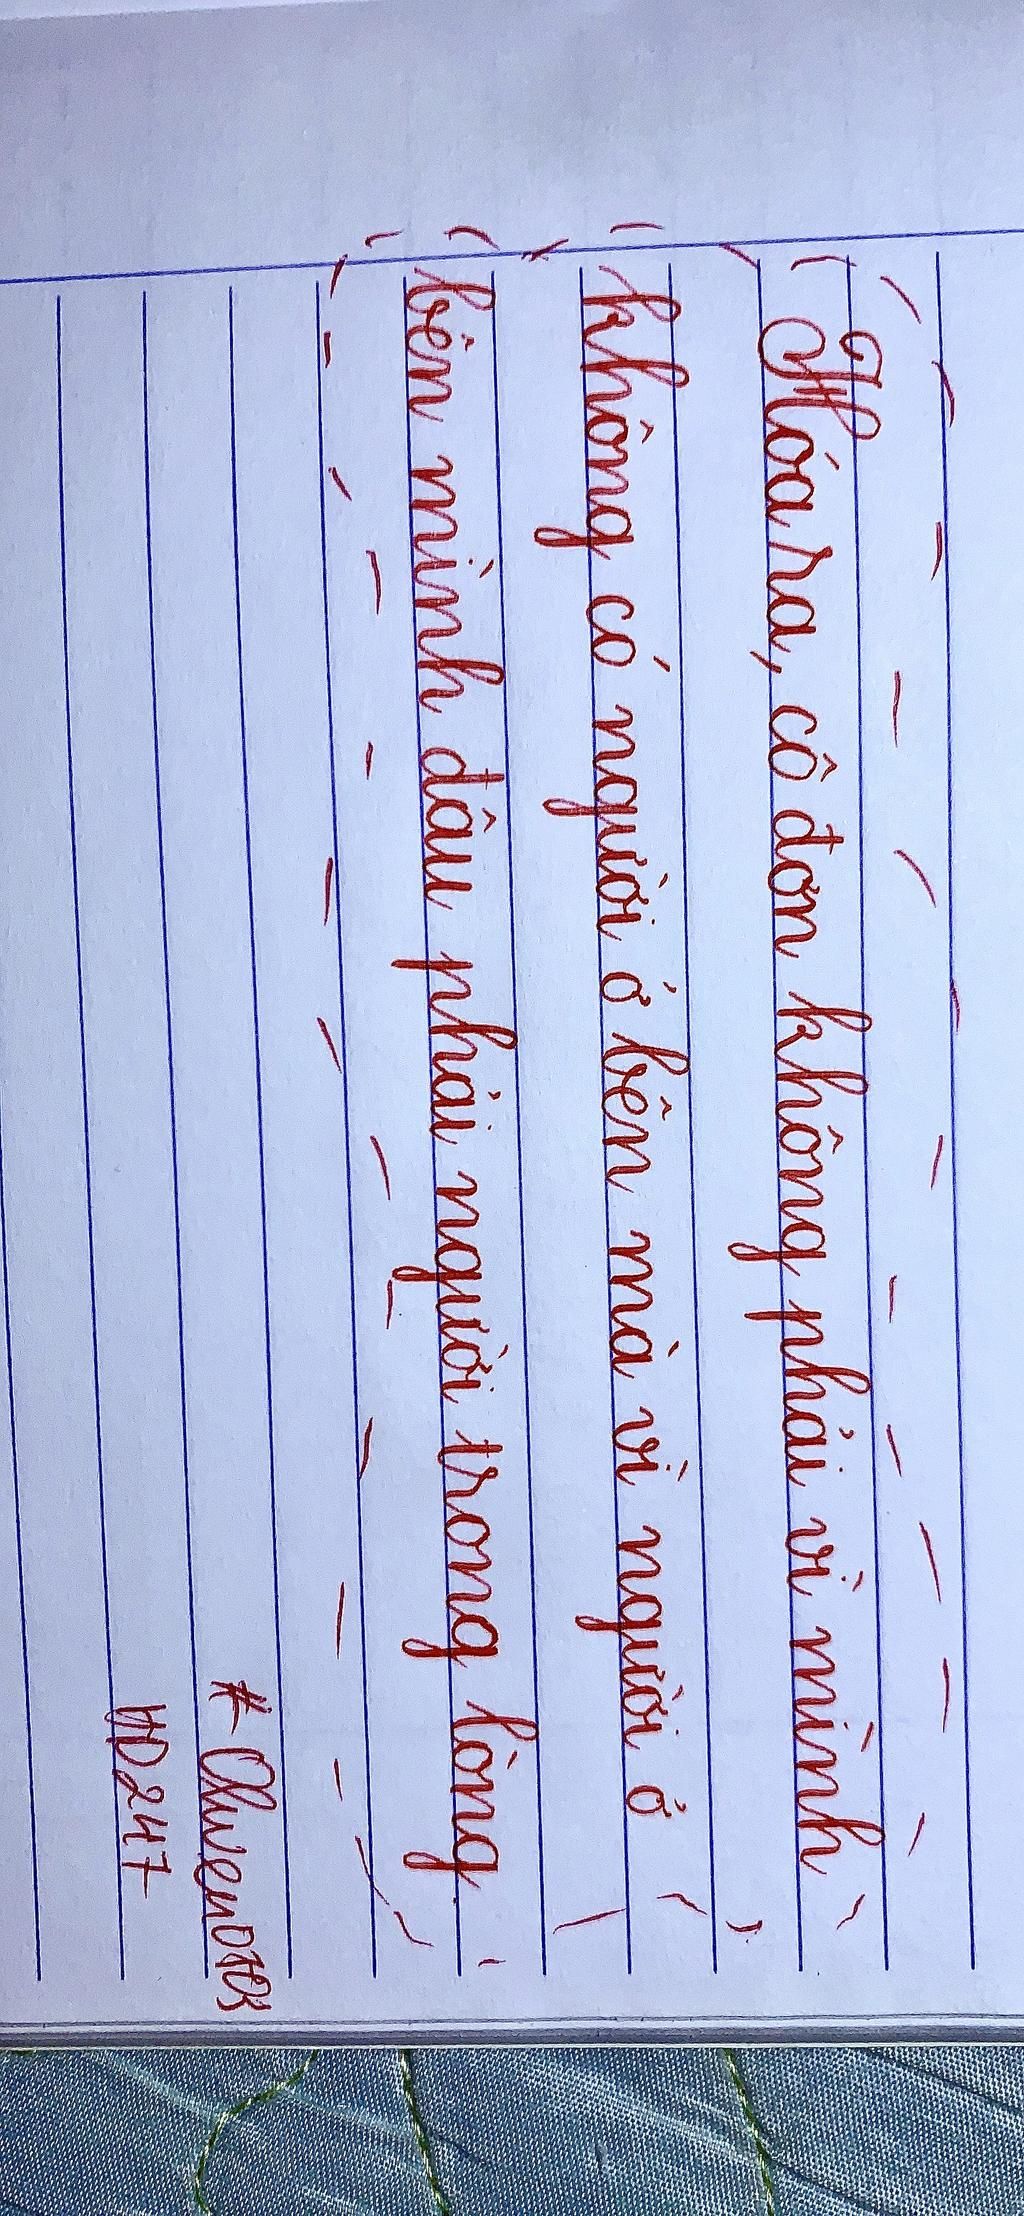 Thóara, cô đơn không phải vì mình
không có người ở bên mà vì người ở
bên mình đâu phải người trong lòng
HD247